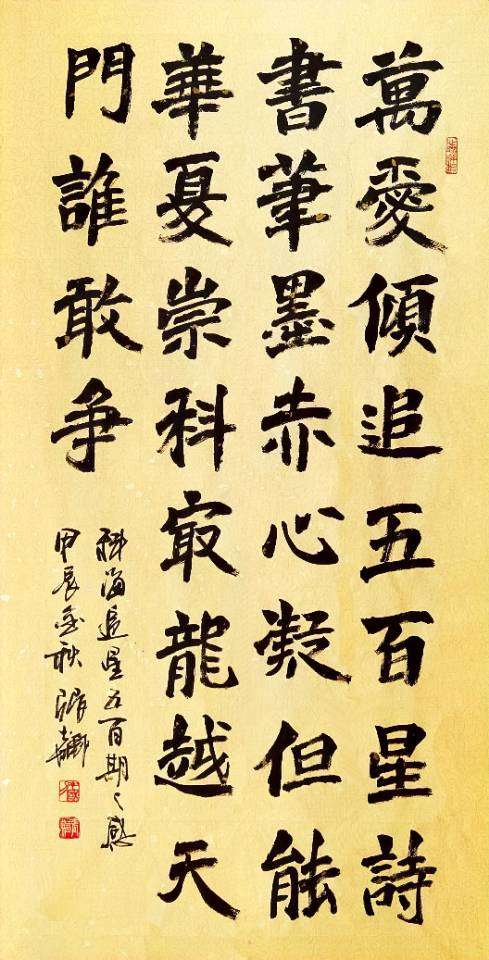 萬愛傾追五百星詩
書筆墨赤心凝但能
華夏崇科㝡龍越天
門誰敢争
科海追星五百期之感
甲辰金秋